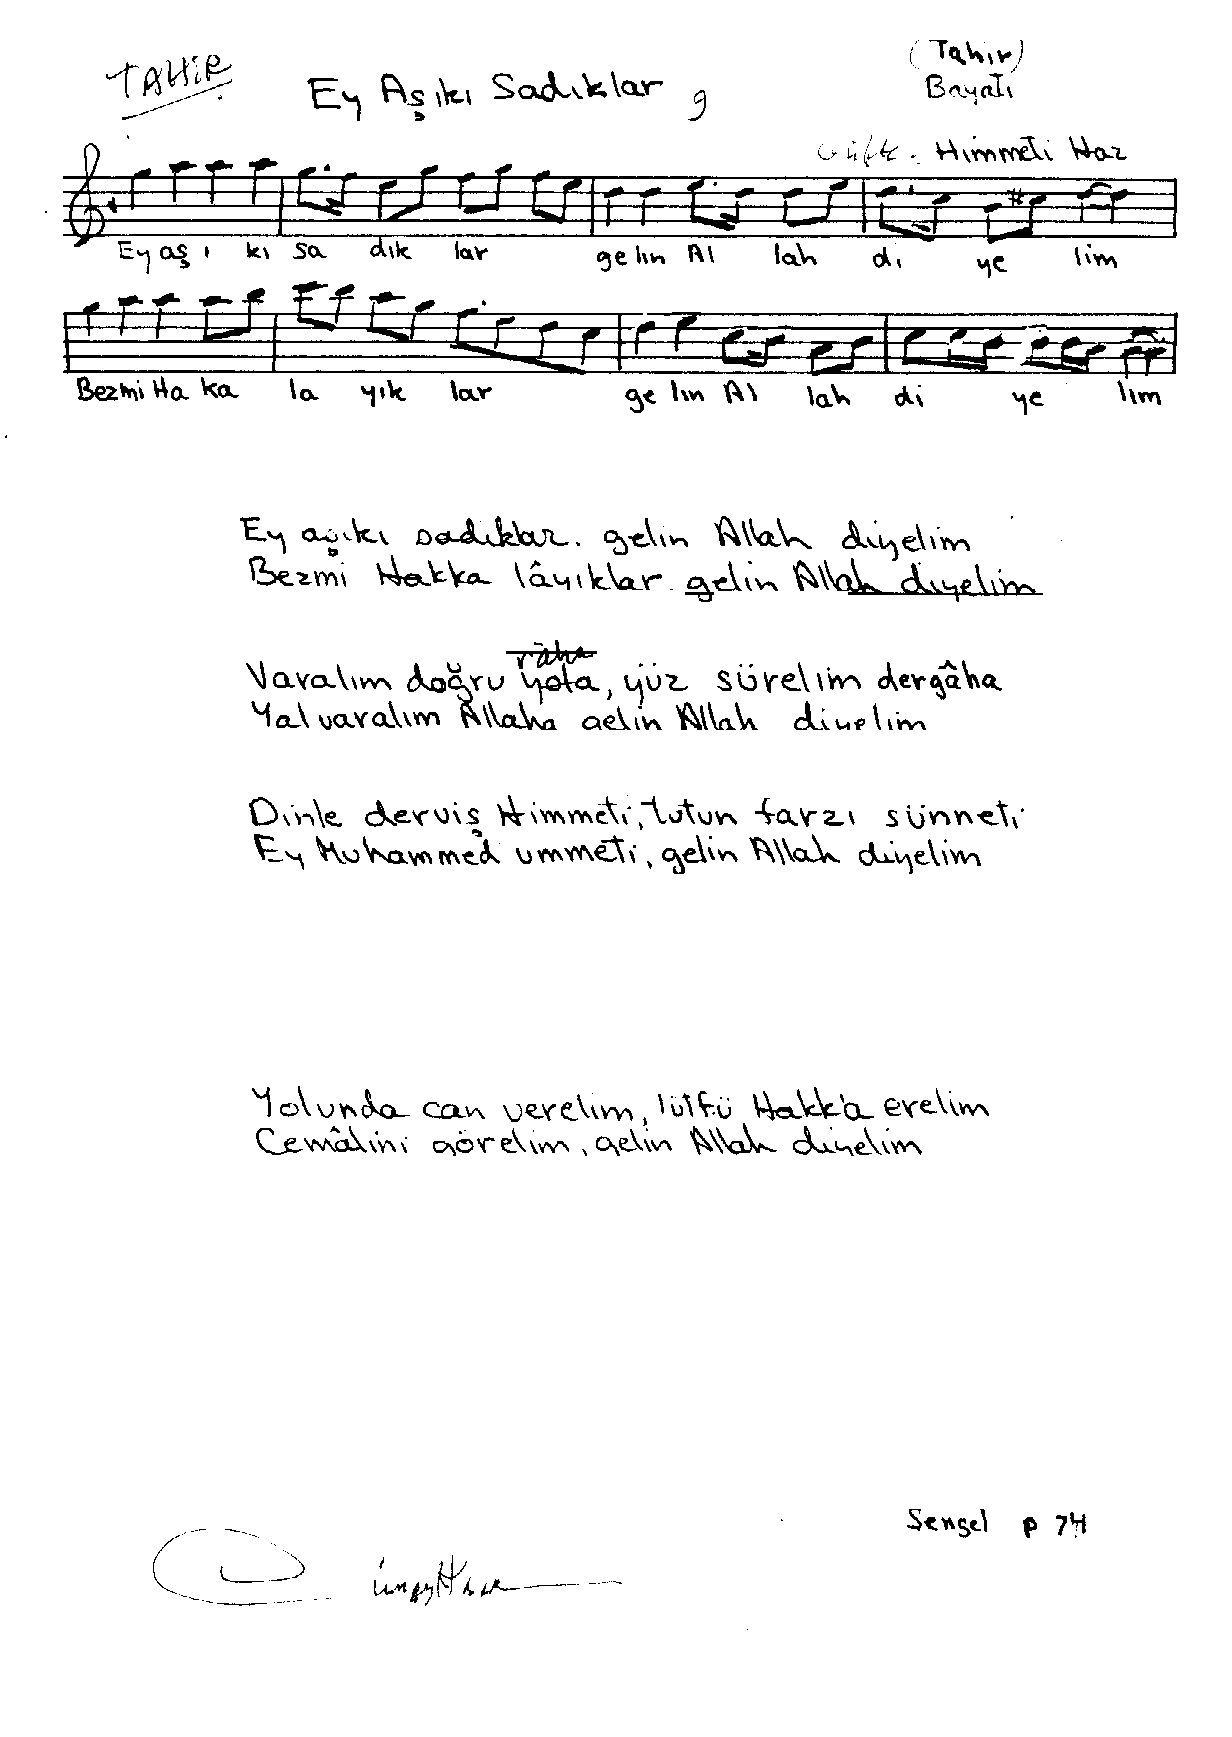 TAHİR
Ey Aşıkı Sadıklar
(Tahir)
Bayati
Güfte: Himmeti Haz
Ey aş ı kı sa dık lar ge lin Al lah di ye lim
Bezmi Ha ka la yık lar ge lin Al lah di ye lim
Ey aşıkı sadıklar. gelin Allah diyelim
Bezmi Hakka lâyıklar gelin Allah diyelim
râha
Varalım doğru yola, yüz sürelim dergâha
Yalvaralım Allaha gelin Allah diyelim
Dinle derviş Himmeti, tutun farzı sünneti
Ey Muhammed ummeti, gelin Allah diyelim
Yolunda can verelim, lütfü Hakk'a erelim
Cemâlini görelim, gelin Allah diyelim
Sengel p 74